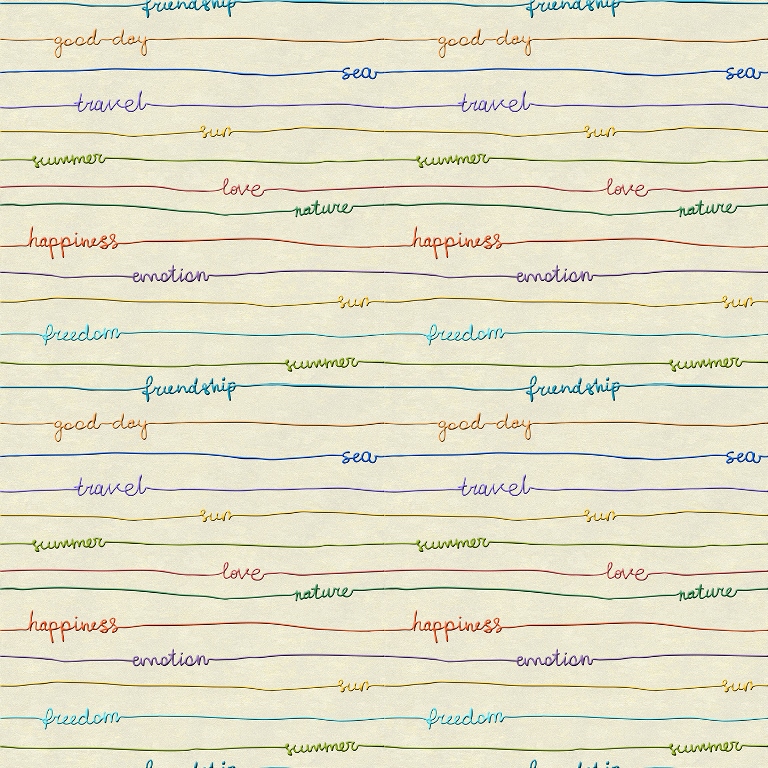 friendship friendship
good day good day
sea sea
travel travel
sun sun
summer summer
love love
nature nature
happiness happiness
emotion emotion
sun sun
freedom freedom
summer summer
friendship friendship
good day good day
sea sea
travel travel
sun sun
summer summer
love love
nature nature
happiness happiness
emotion emotion
sun sun
freedom freedom
summer summer